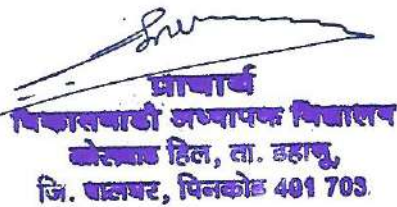 प्राचार्य
विकासवाडी अध्यापक विद्यालय
कोसबाड हिल, ता. डहाणू,
जि. पालघर, पिनकोड 401 703